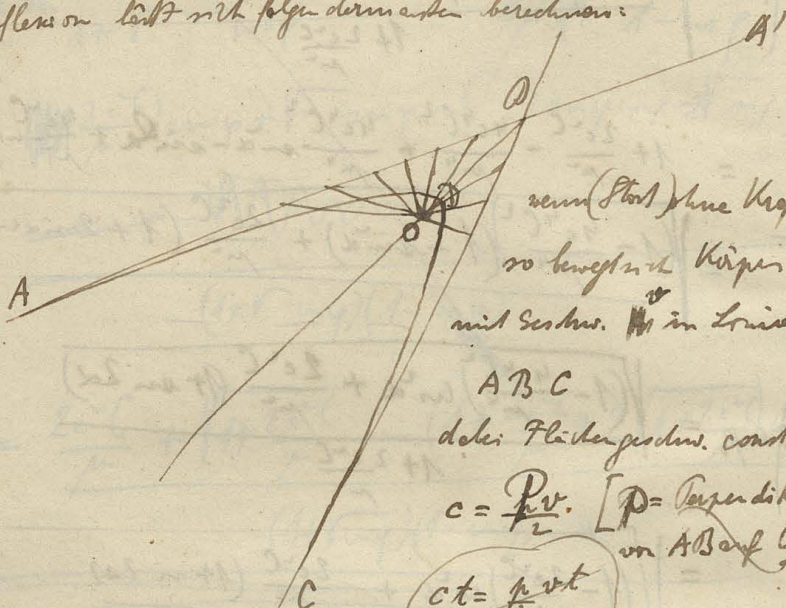 flexion läßt sich folgendermaßen berechnen:
A'
D
B
O
A
wenn (Stoß) ohne
so bewegt sich Körper
mit Geschw. v in Linie
A B C
dabei Flächengeschw. const
c = pv/2. [p = Perpendik
von AB auf
C
ct = p vt